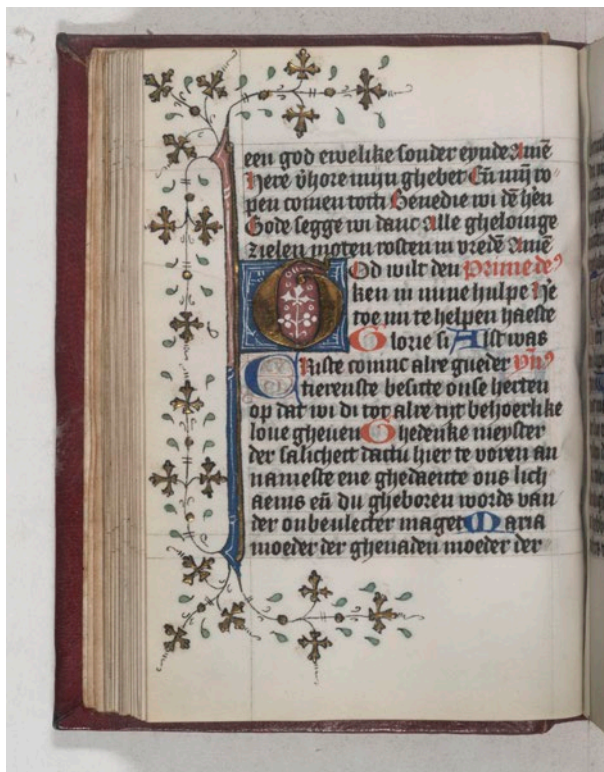 een god ewelike sonder eynde Amē
Here v̄hore mijn ghebet Eñ mijn ro
pen comen totti Benedie wi dē hēn
Gode segge wi danc Alle ghelouige
zielen moten rosten in vredē Amē
God wilt den Prime dē
ken in mine hulpe He
toe mi te helpen haeste
Glorie si Alst was
Criste coninc alre gueder ym̄
tierenste besitte onse herten
op dat wi di tot alre tijt behoerlike
loue gheuen Ghedenke meyster
der salicheit dattu hier te voren an
nameste ene ghedaente ons lich
aems eñ du gheboren words van
der onbeulecter maget Maria
moeder der ghenaden moeder der